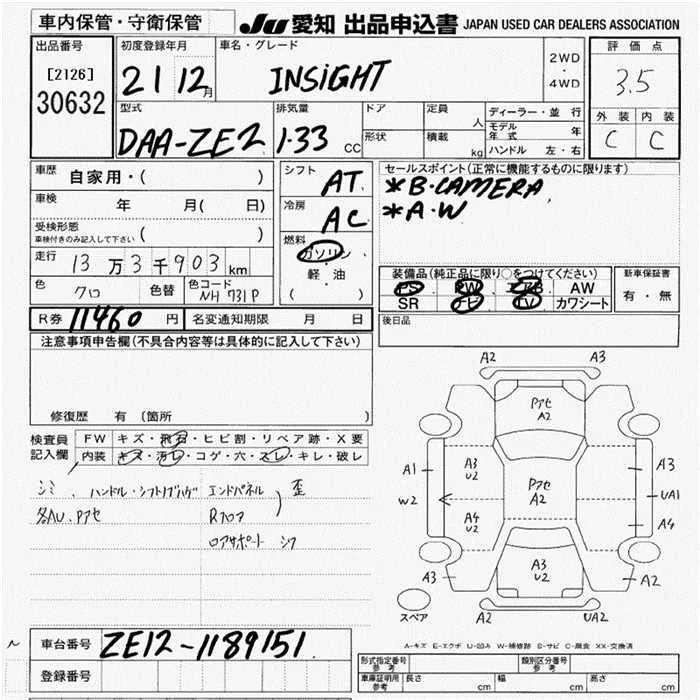 車内保管・守衛保管
JU 愛知 出品申込書 JAPAN USED CAR DEALERS ASSOCIATION
出品番号
[2126]
30632
初度登録年月
21 12月
車名・グレード
INSiGHT
2WD
・
4WD
評価点
3.5
外装 内装
C C
型式
DAA-ZE2
排気量
1.33 CC
ドア
形状
定員 人
積載 kg
ディーラー・並行
モデル年式 年
ハンドル 左・右
車歴 自家用・( )
車検 年 月( 日)
受検形態
車検付きのみ記入して下さい ( )
走行 13万3千903km
色 クロ 色替 色コード NH 731P
シフト AT
冷房 AC
燃料
ガソリン
・
軽・油
( )
セールスポイント(正常に機能するものに限ります)
*B.CAMERA
*A.W
装備品(純正品に限り○をつけてください)
PS PW エアB AW
SR ナビ TV カワシート
新車保証書
有・無
後日品
R券 11460円 名変通知期限 月 日
注意事項申告欄(不具合内容等は具体的に記入して下さい)
修復歴 有 (箇所
検査員記入欄
FW キズ・飛石・ヒビ割・リペア跡・X要
内装 キズ・汚レ・コゲ・穴・スレ・キレ・破レ
シミ、ハンドル・シフトノブハゲ エンドパネル 歪
各AU.Pアセ Rフロア
ロアサポート
A2 A3
Pアセ
A2
A1 A3
U2 A3
Pアセ
A2 UA1
W2 A4
U2 A4
A3 A3
U2 A2
スペア A2 UA2
A-キズ E-エクボ U-凹み W-補修跡 S-サビ C-腐食 XX-交換済
車台番号 ZE12-1189151
登録番号
型式指定番号
参考
類別区分番号
参考
車庫証明用
参考
長さ cm 幅 cm 高さ cm